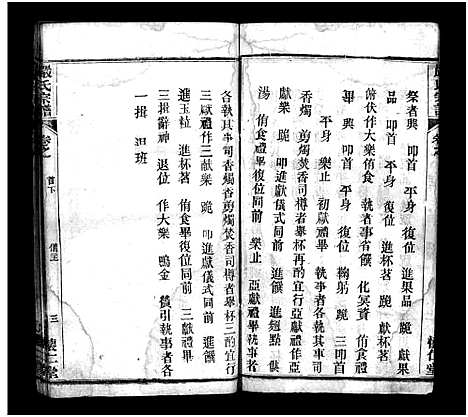 祭者興 叩首 平身 復位 進果品 跪 獻果
品 叩首 平身 復位 進杯茗 跪 獻杯茗
俯伏作大樂侑食 執者事省饌 化冥資 侑食禮
畢 叩首 平身 復位 鞠躬 跪 三叩首
平身 樂止 初獻禮畢 執事者各執其事司
香燭剪燭焚香司樽者舉杯再酌宜行亞獻禮作
亞獻樂 跪 叩進獻儀式同前 進饌 進麵點 供
湯 侑食畢復位同前 樂止 亞獻禮畢執事者
各執其事司香燭者剪燭焚香司樽者舉杯三酌宜行
三獻禮作三獻樂 跪 叩進獻儀式同前 進饌
進玉粒 進杯茗 侑食畢復位同前 三獻禮畢
三揖辭神 退位 作大樂 鳴金 贊引執事者各
一揖 退班
嚴氏宗譜
卷之
首下
儀注
三
懷仁堂